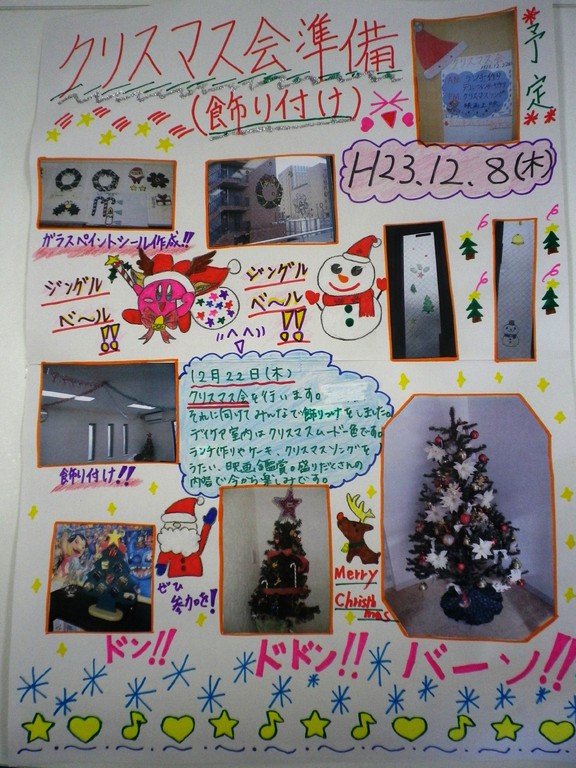 クリスマス会準備
(飾り付け)
予定
H23.12.8(木)
ガラスペイントシール作成!!
ジングル
ベ〜ル
!!
ジングル
ベ〜ル
!!
12月22日(木)
クリスマス会を行います。
それに向けてみんなで飾りつけをしました。
デイケア室内はクリスマスムード一色です。
ランチ作りやケーキ、クリスマスソングを
うたい、映画鑑賞。盛りだくさんの
内容で今から楽しみです。
飾り付け!!
ぜひ
参加を!
Merry
Christmas
ドン!!
ドドン!!
バーン!!